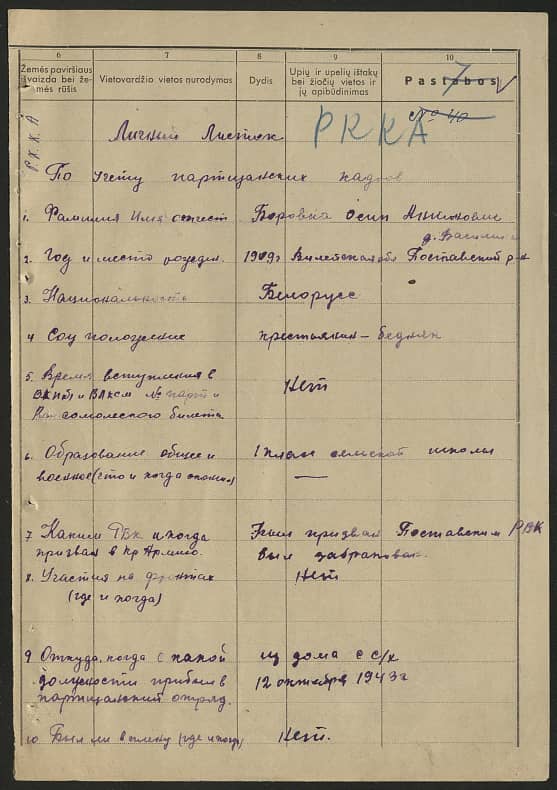 6 7 8 9 10
Žemės paviršiaus išvaizda bei žemės rūšis
Vietovardžio vietos nurodymas
Dydis
Upių ir upelių ištakų bei žiočių vietos ir jų apibūdinimas
Pastabos
Р.К.К.А
PRKA
№ 40
Личний Листок
По учету партизанских кадров
1. Фамилия Имя отчест Боровка Осип
2. Год и место рожден. 1909г Вилейская обл Поставский р-н
3. Национальность Белорусс
4 Соц положение крестьянин – бедняк
5. Время вступления в Нет
ВКПб и ВЛКСМ № парт и
Комсомолеского билета
6. Образование общее и 1 клас сельской школы
военное (что и когда окончил) —
7 Каким РВК и когда был призван Поставским РВК
призван в Кр Армию. был забракован.
8. Участия на фронтах Нет
(где и когда)
9 Откуда, когда с какой из дома с с/х
должности прибыл в 12 октября 1943г
партизанский отряд.
10. Был ли в плену (где и когд) Нет.